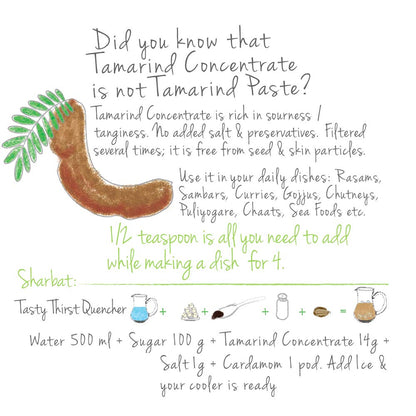 Did you know that
Tamarind Concentrate
is not Tamarind Paste?
Tamarind Concentrate is rich in sourness /
tanginess. No added salt & preservatives. Filtered
several times; it is free from seed & skin particles.
Use it in your daily dishes: Rasams,
Sambars, Curries, Gojjus, Chutneys,
Puliyogare, Chaats, Sea Foods etc.
1/2 teaspoon is all you need to add
while making a dish for 4.
Sharbat:
Tasty Thirst Quencher + + + + =
Water 500 ml + Sugar 100 g + Tamarind Concentrate 14g +
Salt 1g + Cardamom 1 pod. Add Ice &
your cooler is ready